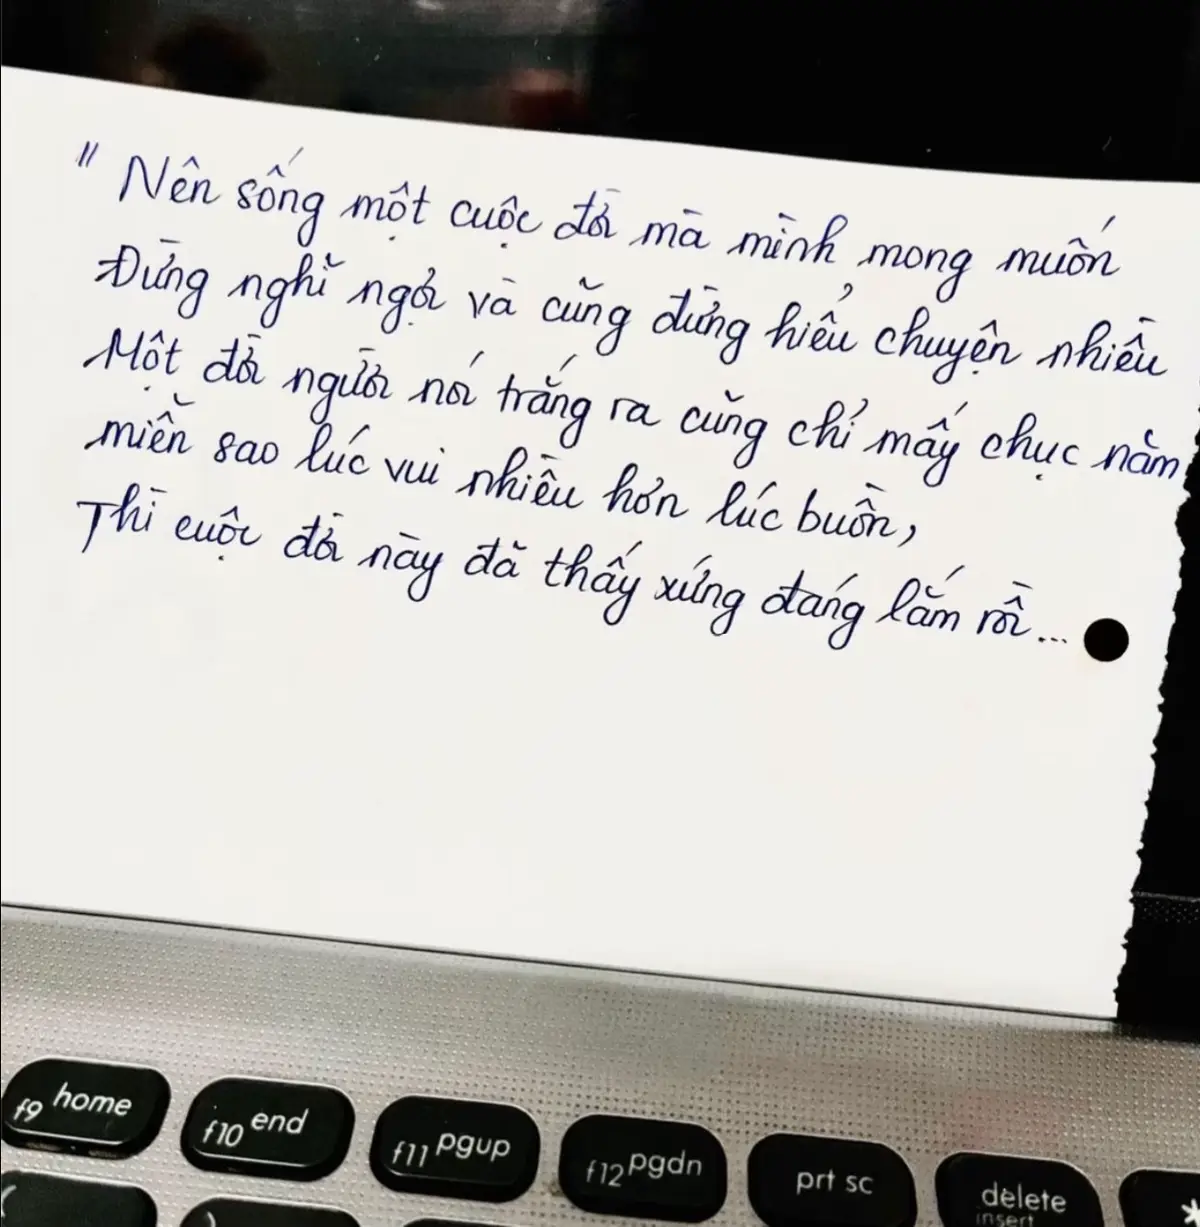 " Nên sống một cuộc đời mà mình mong muốn
Đừng nghĩ ngợi và cũng đừng hiểu chuyện nhiều
Một đời người nói trắng ra cũng chỉ mấy chục năm
miễn sao lúc vui nhiều hơn lúc buồn,
Thì cuộc đời này đã thấy xứng đáng lắm rồi...
f9 home
f10 end
f11 pgup
f12 pgdn
prt sc
delete
insert